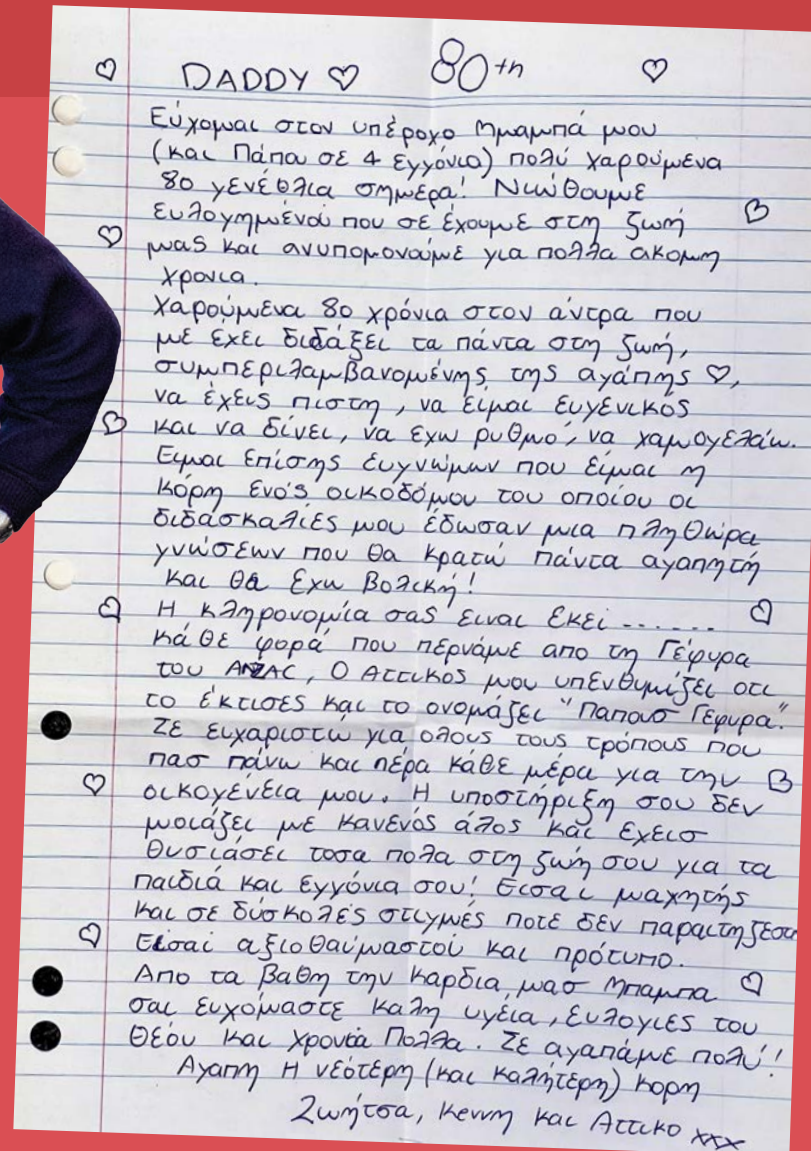 DADDY ♡ 80th
Εύχομαι στον υπέροχο Μπαμπά μου
(και Πάπα σε 4 εγγόνια) πολύ χαρούμενα
80 γενέθλια σημερα! Νιώθουμε
ευλογημμένοι που σε έχουμε στη ζωή
μας και ανυπομονούμε για πολλα ακομη
χρονια.
Χαρούμενα 80 χρόνια στον άντρα που
με έχει διδάξει τα πάντα στη ζωή,
συμπεριλαμβανομένης της αγάπης ♡,
να έχεις πιστη, να είμαι ευγενικός
και να δίνει, να εχω ρυθμό, να χαμογελάω.
Ειμαι επίσης ευγνώμων που είμαι η
κόρη ενός οικοδόμου του οποίου οι
διδασκαλίες μου έδωσαν μια πληθώρα
γνώσεων που θα κρατώ πάντα αγαπητή
και θα εχω βολική!
Η κληρονομία σας ειναι εκεί ......
κάθε φορά που περνάμε απο τη Γέφυρα
του ANZAC, Ο Αττικος μου υπενθυμίζει οτι
το έκτισες και το ονομάζει "Παπουσ Γεφυρα".
Σε ευχαριστώ για ολους τους τρόπους που
πασ πάνω και πέρα κάθε μέρα για την
οικογένεια μου. Η υποστήριξη σου δεν
μοιάζει με κανενός άλος και εχεισ
θυσιάσει τοσα πολα στη ζωή σου για τα
παιδιά και εγγόνια σου! Εισαι μαχητής
και σε δύσκολές στιγμές ποτε δεν παραιτηζεσαι
Είσαι αξιοθαύμαστού και πρότυπο.
Απο τα βαθη την καρδια μασ Μπαμπα
σαι ευχόμαστε καλη υγεία, ευλογιες του
Θεόυ και χρονια Πολλα. Σε αγαπάμε πολύ!
Αγαπη Η νεότερη (και καλήτερη) κορη
Ζωήτσα, Κεννη και Αττικο xxx